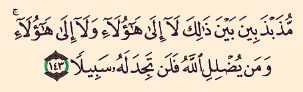 مُّذَبْذَبِينَ بَيْنَ ذَٰلِكَ لَآ إِلَىٰ هَـٰٓؤُلَآءِ وَلَآ إِلَىٰ هَـٰٓؤُلَآءِ ۚ
وَمَن يُضْلِلِ ٱللَّهُ فَلَن تَجِدَ لَهُۥ سَبِيلًا ١٤٣